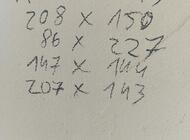 208 x 150
86 x 227
147 x 144
207 x 143